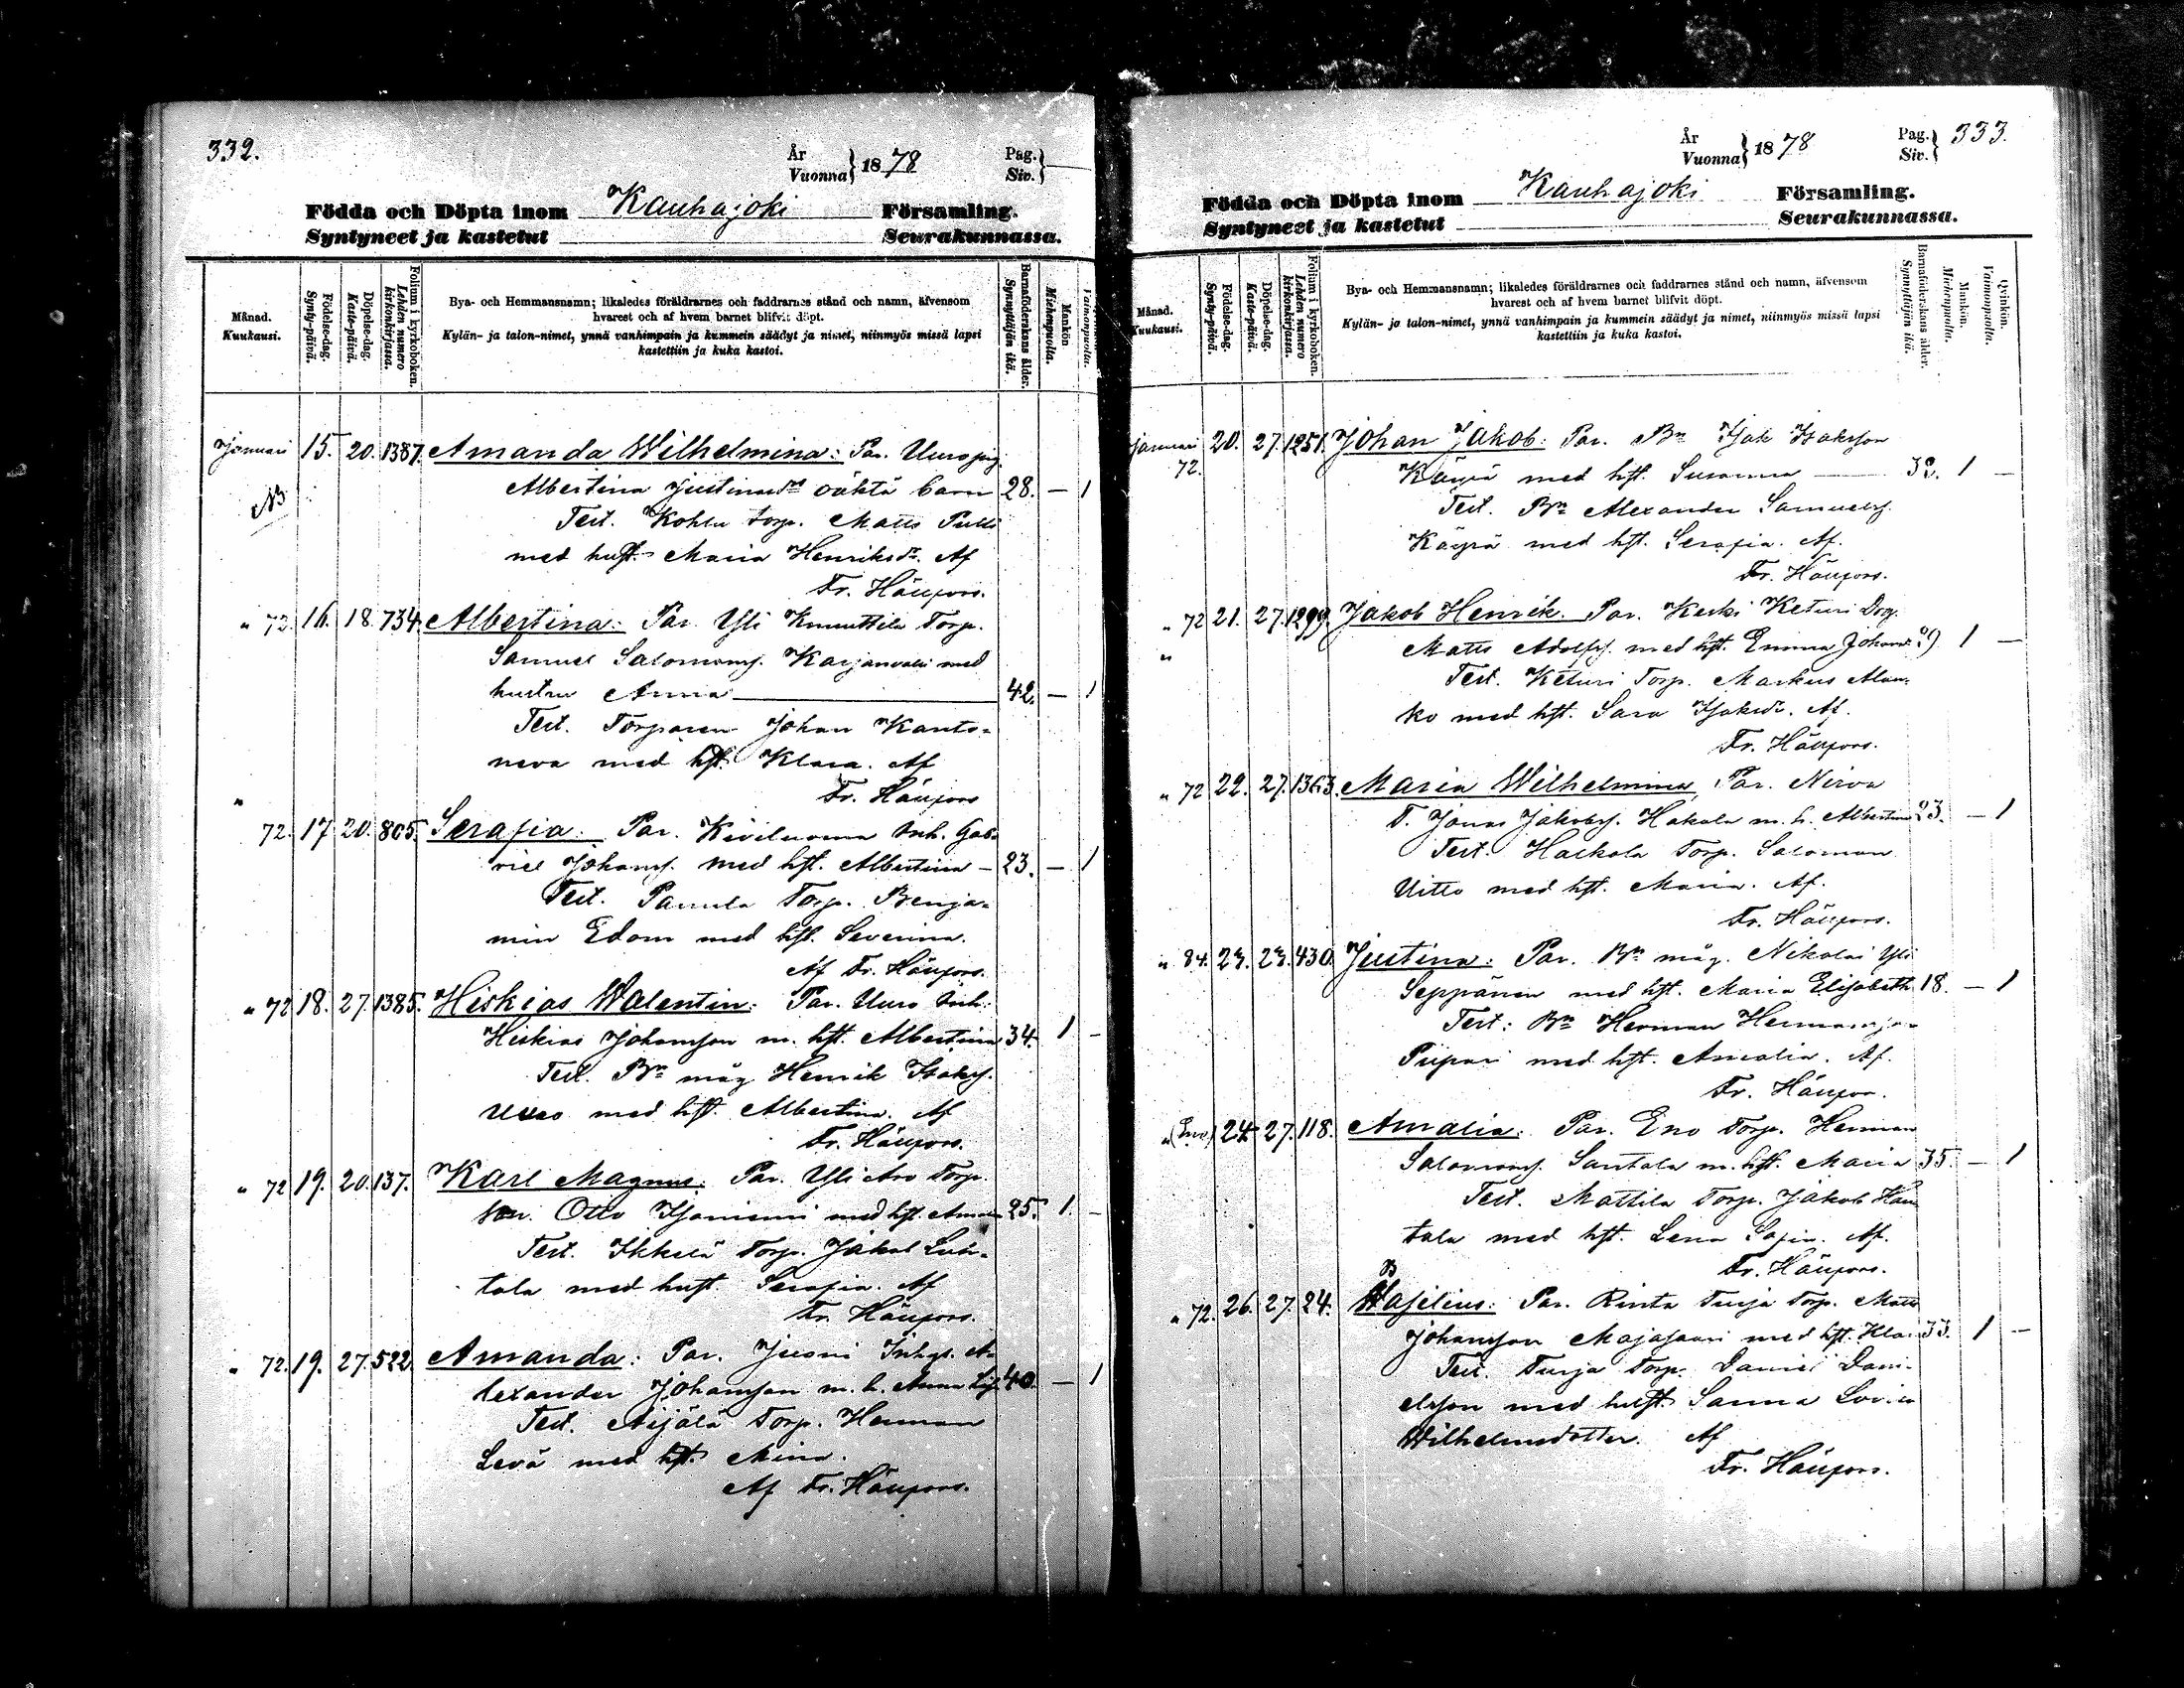 332.
År
Vuonna } 1878
Pag.
Siv. }
Födda och Döpta inom Kauhajoki Församling.
Syntyneet ja kastetut Seurakunnassa.
Månad. Kuukausi.
Födelse-dag. Synty-päivä.
Döpelse-dag. Kaste-päivä.
Folium i kyrkoboken. Lehden numero kirkonkirjassa.
Bya- och Hemmansnamn; likaledes föräldrarnes och faddrarnes stånd och namn, äfvensom
hvarest och af hvem barnet blifvit döpt.
Kylän- ja talon-nimet, ynnä vanhimpain ja kummein säädyt ja nimet, niinmyös missä lapsi
kastettiin ja kuka kastoi.
Barnaföderskans ålder. Synnyttäjän ikä.
Mankön Miehenpuolta.
Vaimonpuolta.
Januari 15. 20. 1387. Amanda Wilhelmina: Par. Uuro pig.
Albertina Justinasdr oäkta barn 28. — 1
Test. Kohlu torp. Matts Pulli
med hust. Maria Henriksdr. Af
Fr. Häyfors.
" 72. 16. 18. 734. Albertina: Par. Yli Knuuttila Torp.
Samuel Salomons. Karjanvalu med
hustru Anna 42. — 1
Test. Torparen Johan Kanto-
neva med hst. Klara. Af
Fr. Häyfors
" 72. 17 20. 805. Serafia: Par. Kiviluoma Inh. Gab-
riel Johans. med hst. Albertina — 23. — 1
Test. Panula Torp. Benja-
min Edom med hst. Severina.
Af Fr. Häyfors.
" 72 18. 27. 1385. Hiskias Walentin: Par. Uuro Inh.
Hiskias Johansson m. hst. Albertina 34. 1 —
Test. Bn måg Henrik Isaks.
Uuro med hst. Albertina. Af
Fr. Häyfors.
" 72 19. 20. 137. Karl Magnus: Par. Yli Aro Torp.
son. Otto Isoniemi med hst. Amanda 25. 1. —
Test. Ikkelä Torp. Jakob Luh-
tala med hust. Serafia. Af
Fr. Häyfors.
" 72. 19. 27. 522. Amanda: Par. Juoni Inhys. A-
lexander Johansson m. h. Anna Lis. 40. — 1
Test. Äijälä Torp. Herman
Levä med hst. Mina.
Af Fr. Häyfors.
År
Vuonna } 1878
Pag.
Siv. } 333.
Födda och Döpta inom Kauhajoki Församling.
Syntyneet ja kastetut Seurakunnassa.
Månad. Kuukausi.
Födelse-dag. Synty-päivä.
Döpelse-dag. Kaste-päivä.
Folium i kyrkoboken. Lehden numero kirkonkirjassa.
Bya- och Hemmansnamn; likaledes föräldrarnes och faddrarnes stånd och namn, äfvensom
hvarest och af hvem barnet blifvit döpt.
Kylän- ja talon-nimet, ynnä vanhimpain ja kummein säädyt ja nimet, niinmyös missä lapsi
kastettiin ja kuka kastoi.
Barnaföderskans ålder. Synnyttäjän ikä.
Mankön. Miehenpuolta.
Qvinkön. Vaimonpuolta.
Januari 20. 27. 1251. Johan Jakob: Par. Bn Isak Isaksson
72. Käyrä med hst. Susanna — 32. 1 —
Test. Bn Alexander Samuels.
Käyrä med hst. Serafia. Af.
Fr. Häyfors.
" 72 21. 27. 1299. Jakob Henrik. Par. Keski Keturi Drg.
Matts Adolfs. med hst. Emma Johansdr 1 —
Test. Keturi Torp. Markus Alan-
ko med hst. Sara Isaksdr. Af.
Fr. Häyfors.
" 72 22. 27. 1363. Maria Wilhelmina, Par. Nirva
T. Jonas Jakobs. Hakala m. h. Albertina 23. — 1
Test. Halkola Torp. Salomon
Uitto med hst. Maria. Af.
Fr. Häyfors.
" 84. 23. 23. 430. Justina: Par. Bn måg. Nikolai Yli
Seppänen med hst. Maria Elisabeth 18. — 1
Test: Bn Herman Hermansson
Piipari med hst. Amalia. Af.
Fr. Häyfor.
" (Eno) 24. 27. 118. Amalia: Par. Eno Torp. Herman
Salomons. Santala m. hst. Maria 35. — 1
Test. Mattila Torp. Jakob Han
tala med hst. Lena Sofia. Af.
Fr. Häyfors.
" 72. 26. 27. 24. Basilius: Par. Rinta Turja Torp. Matts
Johansson Majasaari med hst. Klara 33. 1 —
Test. Turja Torp. Daniel Dani-
elsson med hust. Sanna Lovisa
Wilhelmsdotter. Af
Fr. Häyfors.